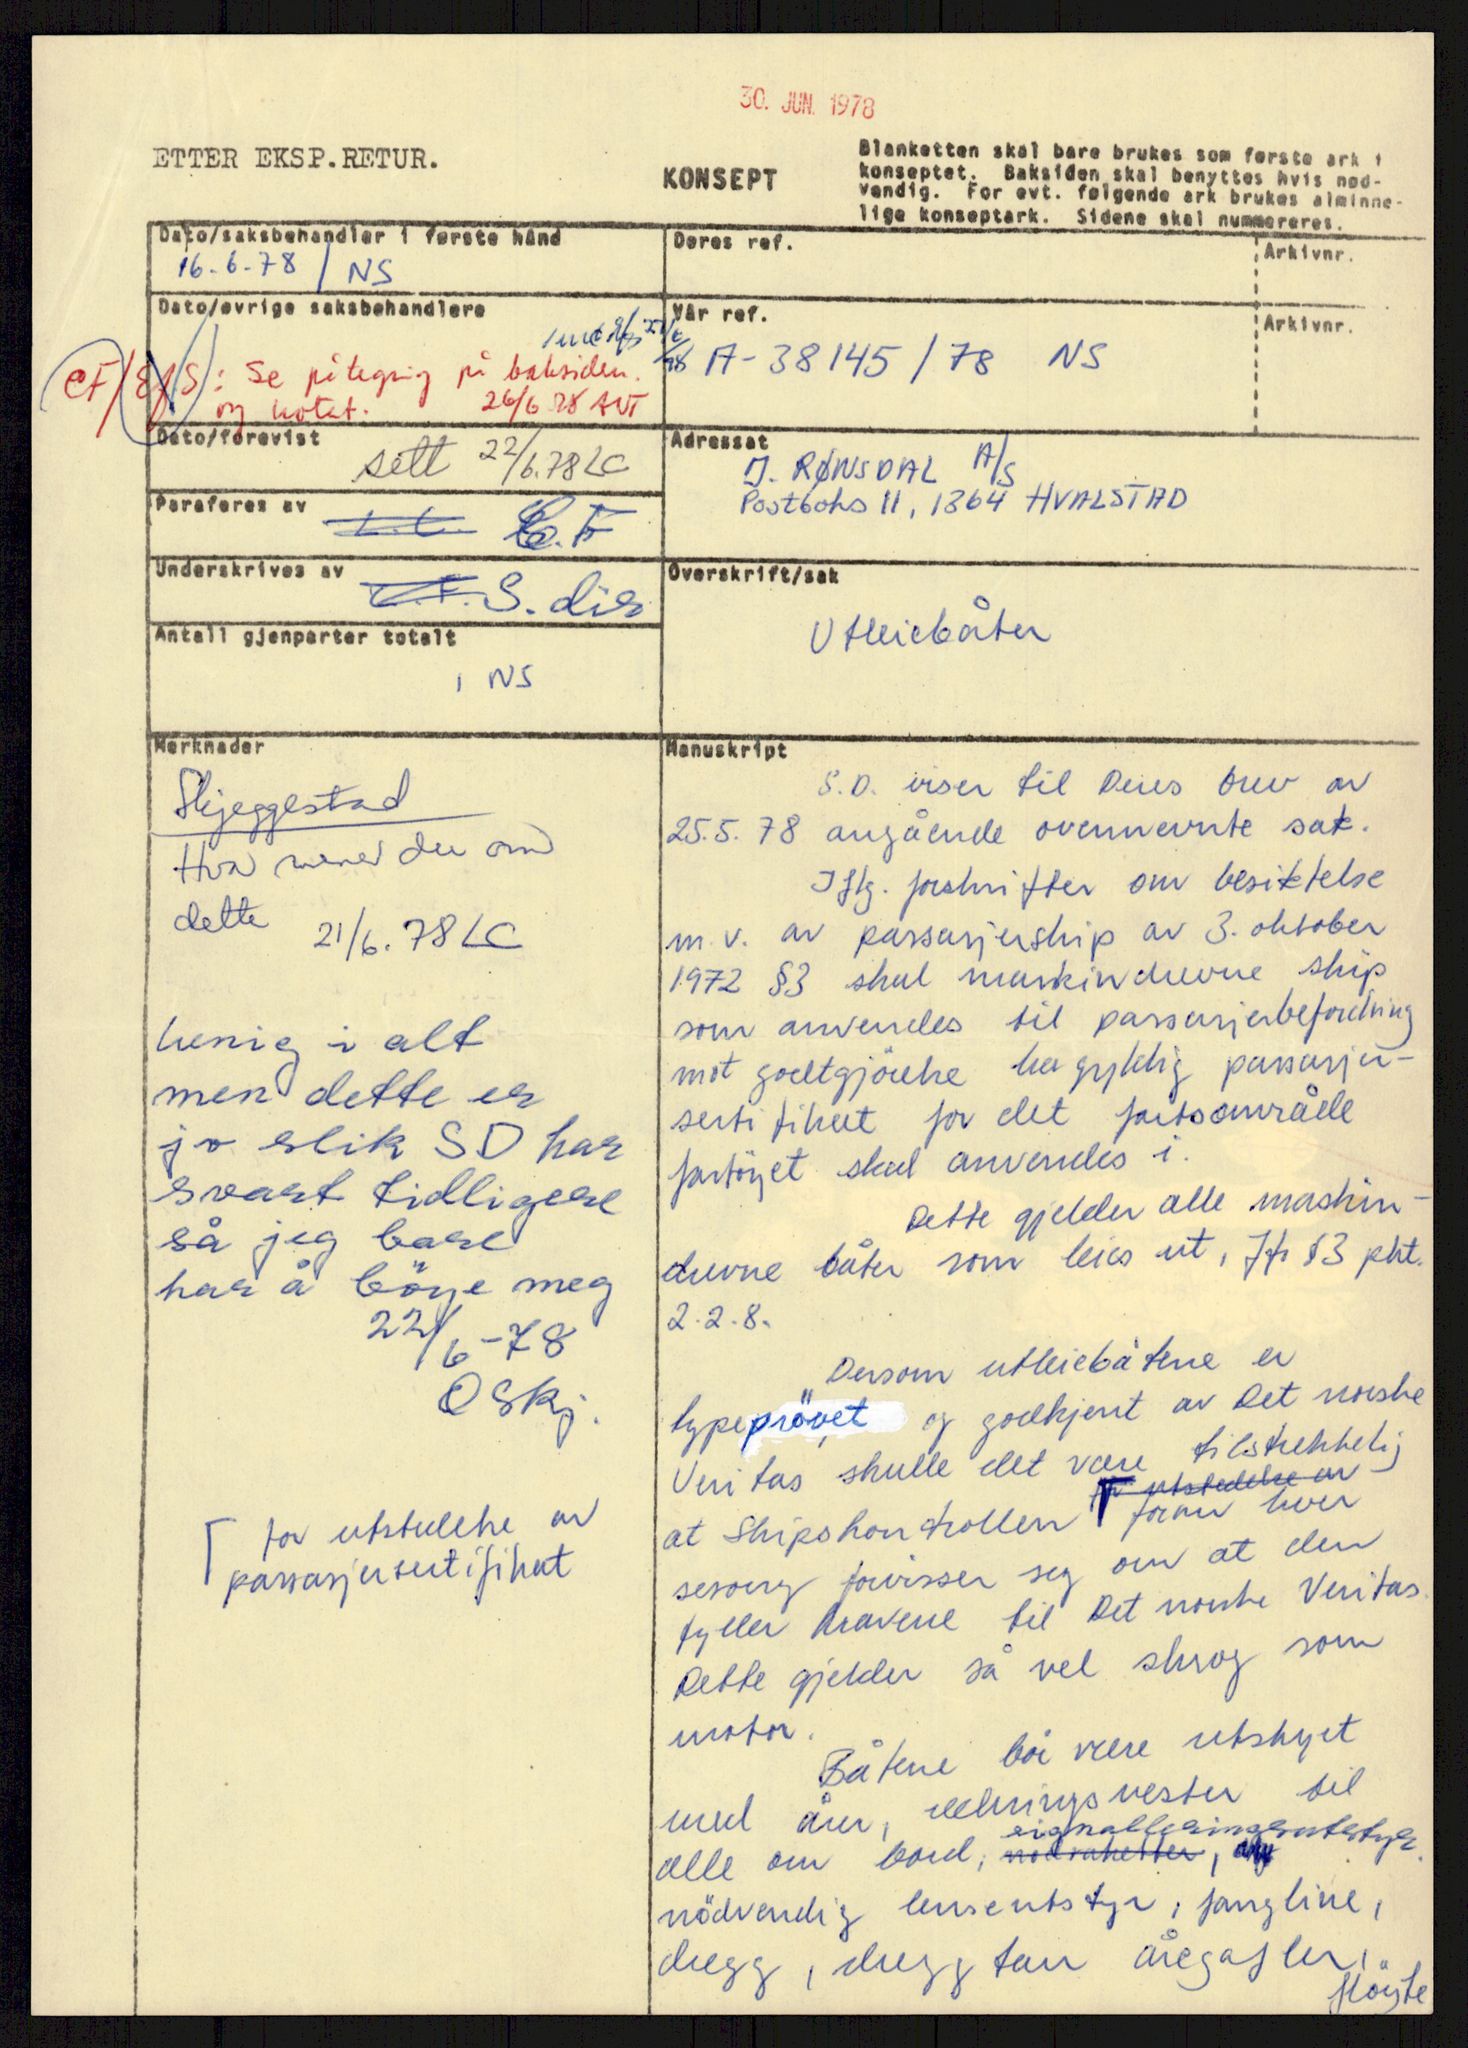 30. JUN. 1978
ETTER EKSP.RETUR.
KONSEPT
Blanketten skal bare brukes som første ark i
konseptet. Baksiden skal benyttes hvis nød-
vendig. For evt. følgende ark brukes alminne-
lige konseptark. Sidene skal nummereres.
Dato/saksbehandler i første hånd
16.6.78 / NS
Deres ref.
Arkivnr.
Dato/øvrige saksbehandlere
CF/ : Se påtegnig på baksiden.
og notat. 26/6 78 AVT
Vår ref.
A-38145/78 NS
Arkivnr.
Dato/forevist
sett 22/6.78 LC
Adressat
J. RØNSDAL A/S
Postboks 11, 1364 HVALSTAD
Paraferes av
C.F
Underskrives av
S. dir
Overskrift/sak
Utleiebåter
Antall gjenparter totalt
1 NS
Merknader
Skjeggestad
Hva mener du om
dette 21/6.78 LC
uenig i alt
men dette er
jo slik SD har
svart tidligere
så jeg bare
har å böye meg
22/6-78
O Skj.
for utstedelse av
passasjersertifikat
Manuskript
S.D. viser til Deres brev av
25.5.78 angående ovennevnte sak.
Iflg. forskrifter om besiktelse
m.v. av passasjerskip av 3. oktober
1972 §3 skal maskindrevne skip
som anvendes til passasjerbefordring
mot godtgjörelse ha gyldig passasjer-
sertifikat for det fartsområde
fartöyet skal anvendes i.
Dette gjelder alle maskin-
drevne båter som leies ut, jfr §3 pkt.
2.2.8.
Dersom utleiebåtene er
typeprövet og godkjent av Det norske
Veritas skulle det være tilstrekkelig
for utstedelse av
at Skipskontrollen foran hver
sesong forvisser seg om at den
fyller kravene til Det norske Veritas.
Dette gjelder så vel skrog som
motor.
Båtene bör være utstyrt
med årer, redningsvester til
signalleringsutstyr
alle om bord, nödraketter,
nödvendig lenseutstyr, fangline,
dregg, dreggtau åregafler,
Höyste